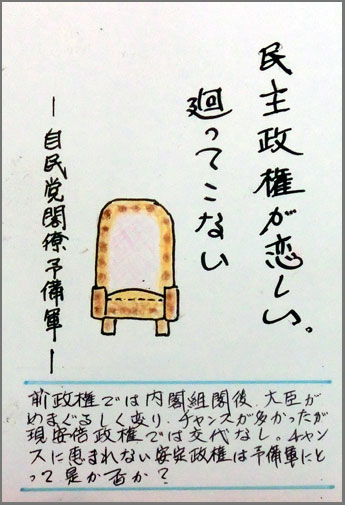 民主政権が恋しい。
廻ってこない
―自民党閣僚予備軍―
前政権では内閣組閣後、大臣が
めまぐるしく変り、チャンスが多かったが
現安倍政権では交代なし。チャン
スに恵まれない安定政権は予備軍にと
って是か否か?